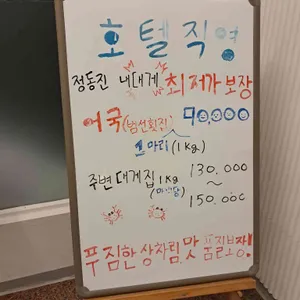 호텔직영
정동진 내대게 최저가보장
어국(범선횟집) 90,000
스마리(1kg)
주변대게집 1kg 130.000
~
150.000
푸짐한상차림,맛 품질보장!